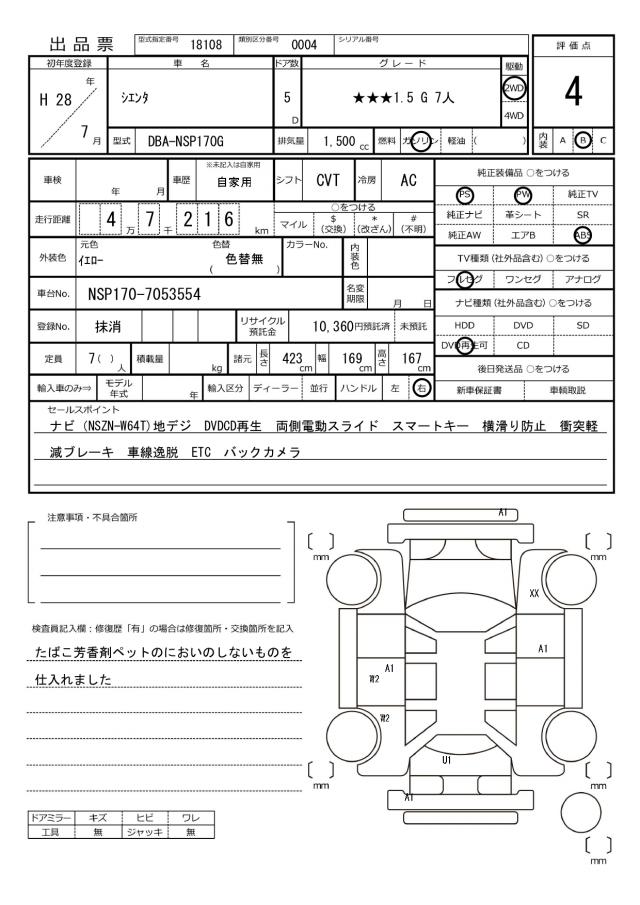 出品票
型式指定番号 18108 類別区分番号 0004 シリアル番号
評価点
4
初年度登録 車名 ドア数 グレード 駆動
H 28 年
7 月
シエンタ
5
D
★★★1.5 G 7人
2WD
4WD
型式 DBA-NSP170G 排気量 1,500 cc 燃料 ガソリン 軽油 ( )
内装 A B C
車検 年 月 車歴 ※未記入は自家用
自家用
シフト CVT 冷房 AC
純正装備品 ○をつける
PS PW 純正TV
走行距離 4 万 7 千 2 1 6 km
○をつける
マイル $ (交換) * (改ざん) # (不明)
純正ナビ 革シート SR
純正AW エアB ABS
外装色 元色
イエロー
色替
( 色替無 )
カラーNo. 内装色
TV種類 (社外品含む) ○をつける
フルセグ ワンセグ アナログ
車台No. NSP170-7053554 名変期限 月 日
ナビ種類 (社外品含む) ○をつける
登録No. 抹消 リサイクル預託金 10,360円預託済 未預託
HDD DVD SD
DVD再生可 CD
定員 7( ) 人 積載量 kg 諸元 長さ 423 cm 幅 169 cm 高さ 167 cm
後日発送品 ○をつける
輸入車のみ⇒ モデル年式 年 輸入区分 ディーラー 並行 ハンドル 左 右
新車保証書 車輌取説
セールスポイント
ナビ (NSZN-W64T)地デジ DVDCD再生 両側電動スライド スマートキー 横滑り防止 衝突軽
減ブレーキ 車線逸脱 ETC バックカメラ
注意事項・不具合箇所
A1
mm
mm
XX
検査員記入欄:修復歴「有」の場合は修復箇所・交換箇所を記入
たばこ芳香剤ペットのにおいのしないものを
仕入れました
A1
A1
W2
W2
U1
mm
mm
A1
ドアミラー キズ ヒビ ワレ
工具 無 ジャッキ 無
mm